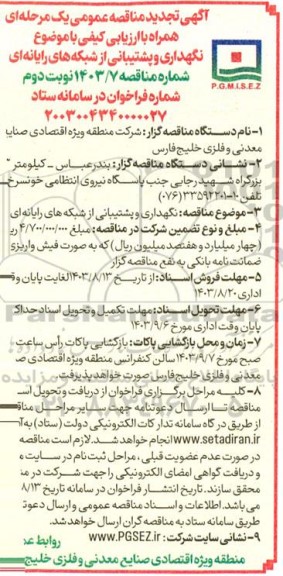 آگهی تجدید مناقصه عمومی یک مرحله‌ای
همراه با ارزیابی کیفی با موضوع
نگهداری و پشتیبانی از شبکه های رایانه ای
شماره مناقصه ۱۴۰۳/۷ نوبت دوم
شماره فراخوان در سامانه ستاد
۲۰۰۳۰۰۴۳۴۰۰۰۰۰۲۷
P.G.M.I.S.E.Z
۱- نام دستگاه مناقصه گزار: شرکت منطقه ویژه اقتصادی صنایع
معدنی و فلزی خلیج فارس
۲- نشانی دستگاه مناقصه گزار: بندرعباس – کیلومتر
بزرگراه شهید رجایی جنب پاسگاه نیروی انتظامی خونسرخ
تلفن ۱۰-۳۳۵۹۲۲۰۱ (۰۷۶)
۳- موضوع مناقصه: نگهداری و پشتیبانی از شبکه های رایانه ای
۴- مبلغ و نوع تضمین شرکت در مناقصه: مبلغ ۴/۷۰۰/۰۰۰/۰۰۰ ری
(چهار میلیارد و هفتصد میلیون ریال) که به صورت فیش واریزی
ضمانت نامه بانکی به نفع مناقصه گزار
۵- مهلت فروش اسناد: از تاریخ ۱۴۰۳/۸/۱۳ لغایت پایان وق
اداری ۱۴۰۳/۸/۲۰
۶- مهلت تحویل اسناد: مهلت تکمیل و تحویل اسناد حداک
پایان وقت اداری مورخ ۱۴۰۳/۹/۶
۷- زمان و محل بازگشایی پاکات: بازگشایی پاکات رأس ساعت
صبح مورخ ۱۴۰۳/۹/۷ سالن کنفرانس منطقه ویژه اقتصادی ص
معدنی و فلزی خلیج فارس صورت خواهد پذیرفت.
۸- کلیه مراحل برگزاری فراخوان از دریافت و تحویل اسـ
مناقصه تا ارسال دعوتنامه جهت سایر مراحل مناقـ
از طریق درگاه سامانه تدارکات الکترونیکی دولت (ستاد) به آ
www.setadiran.ir انجام خواهد شد. لازم است مناقصه
در صورت عدم عضویت قبلی، مراحل ثبت نام در سایت
و دریافت گواهی امضای الکترونیکی را جهت شرکت در من
محقق سازند. تاریخ انتشار فراخوان در سامانه تاریخ ۸/۱۳
می باشد. اطلاعات و اسناد مناقصه عمومی و ارسال دعوتـ
طریق سامانه ستاد به مناقصه گران ارسال خواهد شد.
۹- نشانی سایت شرکت: www.PGSEZ.ir
روابط عم
منطقه ویژه اقتصادی صنایع معدنی و فلزی خلیج